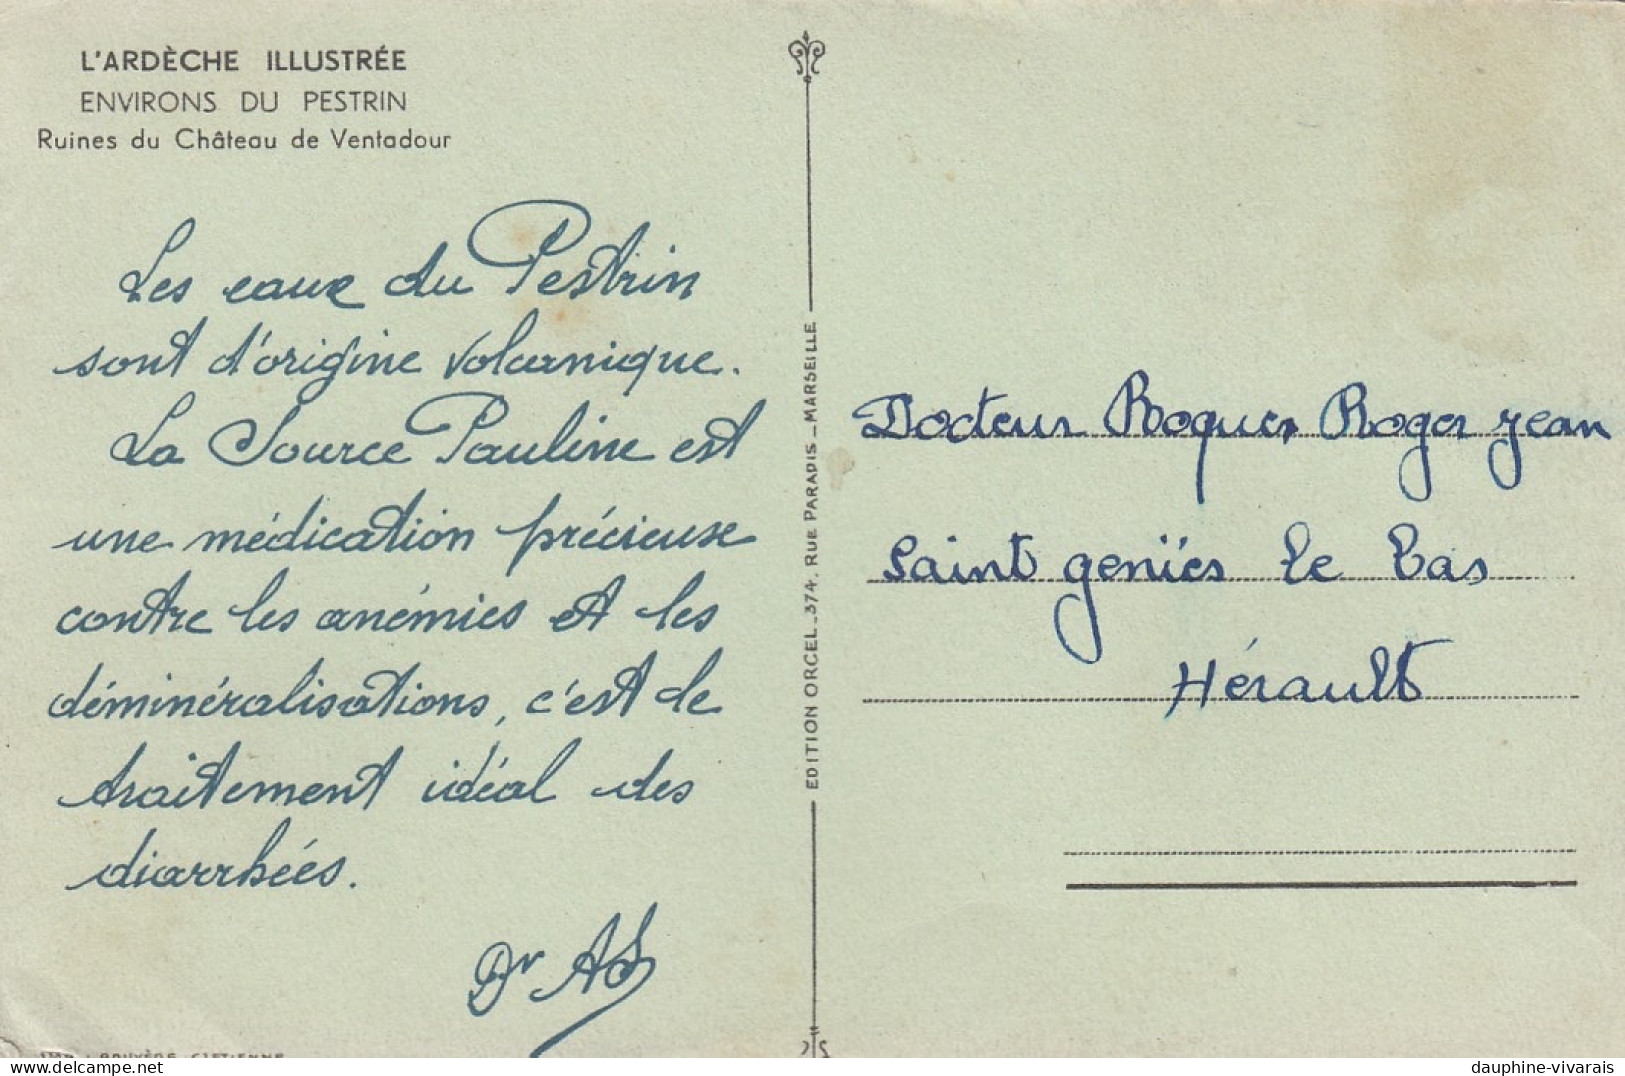 L'ARDÈCHE ILLUSTRÉE
ENVIRONS DU PESTRIN
Ruines du Château de Ventadour
Les eaux du Pestrin
sont d'origine volcanique.
La Source Pauline est
une médication précieuse
contre les anémies et les
déminéralisations, c'est le
traitement idéal des
diarrhées.
Dr AS
EDITION ORCEL_374, RUE PARADIS_MARSEILLE
Docteur Roques Roger jean
Saint geniès le bas
Hérault
dauphine-vivarais